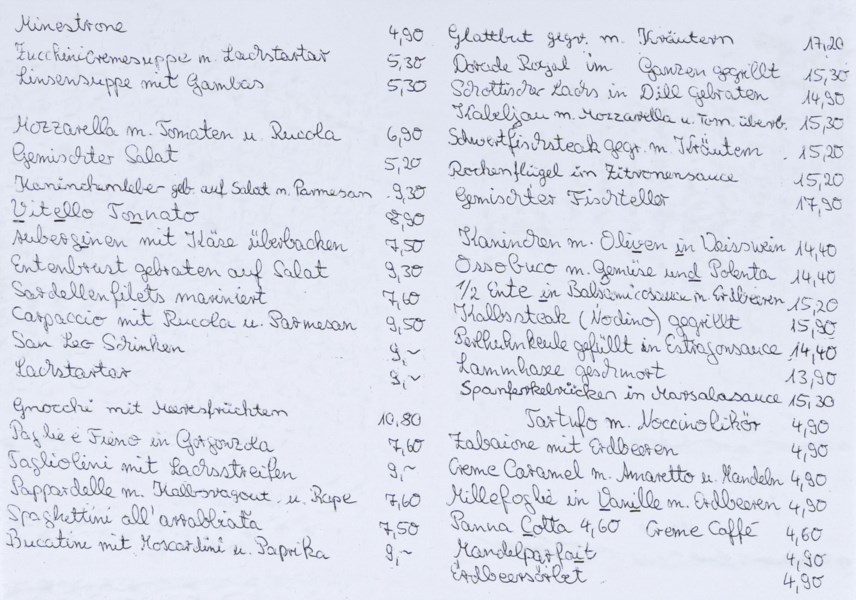 Minestrone 4,90
Zucchinicremesuppe m. Lachstartar 5,30
Linsensuppe mit Gambas 5,30
Mozzarella m. Tomaten u. Rucola 6,90
Gemischter Salat 5,20
Kaninchenleber geb. auf Salat m. Parmesan 9,30
Vitello Tonnato 8,90
Auberginen mit Käse überbacken 7,50
Entenbrust gebraten auf Salat 9,30
Sardellenfilets mariniert 7,60
Carpaccio mit Rucola u. Parmesan 9,50
San Leo Schinken 9,~
Lachstartar 9,~
Gnocchi mit Meeresfrüchten 10,80
Paglie e Fieno in Gorgonzola 7,60
Tagliolini mit Lachsstreifen 9,~
Pappardelle m. Kalbsragout u. Rape 7,60
Spaghettini all'arrabbiata 7,50
Bucatini mit Moscardini u. Paprika 9,~
Glattbut gegr. m. Kräutern 17,20
Dorade Royal im Ganzen gegrillt 15,30
Schottischer Lachs in Dill Gebraten 14,90
Kabeljau m. Mozzarella u. Tom. überb. 15,30
Schwertfischsteak gegr. m. Kräutern 15,20
Rochenflügel in Zitronensauce 15,20
Gemischter Fischteller 17,90
Kaninchen m. Oliven in Weisswein 14,40
Ossobuco m. Gemüse und Polenta 14,40
1/2 Ente in Balsamicosauce m. Erdbeeren 15,20
Kalbssteak (Nodino) gegrillt 15,90
Perlhuhnkeule gefüllt in Estragonsauce 14,40
Lammhaxe geschmort 13,90
Spanferkelrücken in Marsalasauce 15,30
Tartufo m. Noccinolikör 4,90
Zabaione mit Erdbeeren 4,90
Creme Caramel m. Amaretto u. Mandeln 4,90
Millefoglie in Vanille m. Erdbeeren 4,90
Panna Cotta 4,60 Creme Caffé 4,60
Mandelparfait 4,90
Erdbeersorbet 4,90